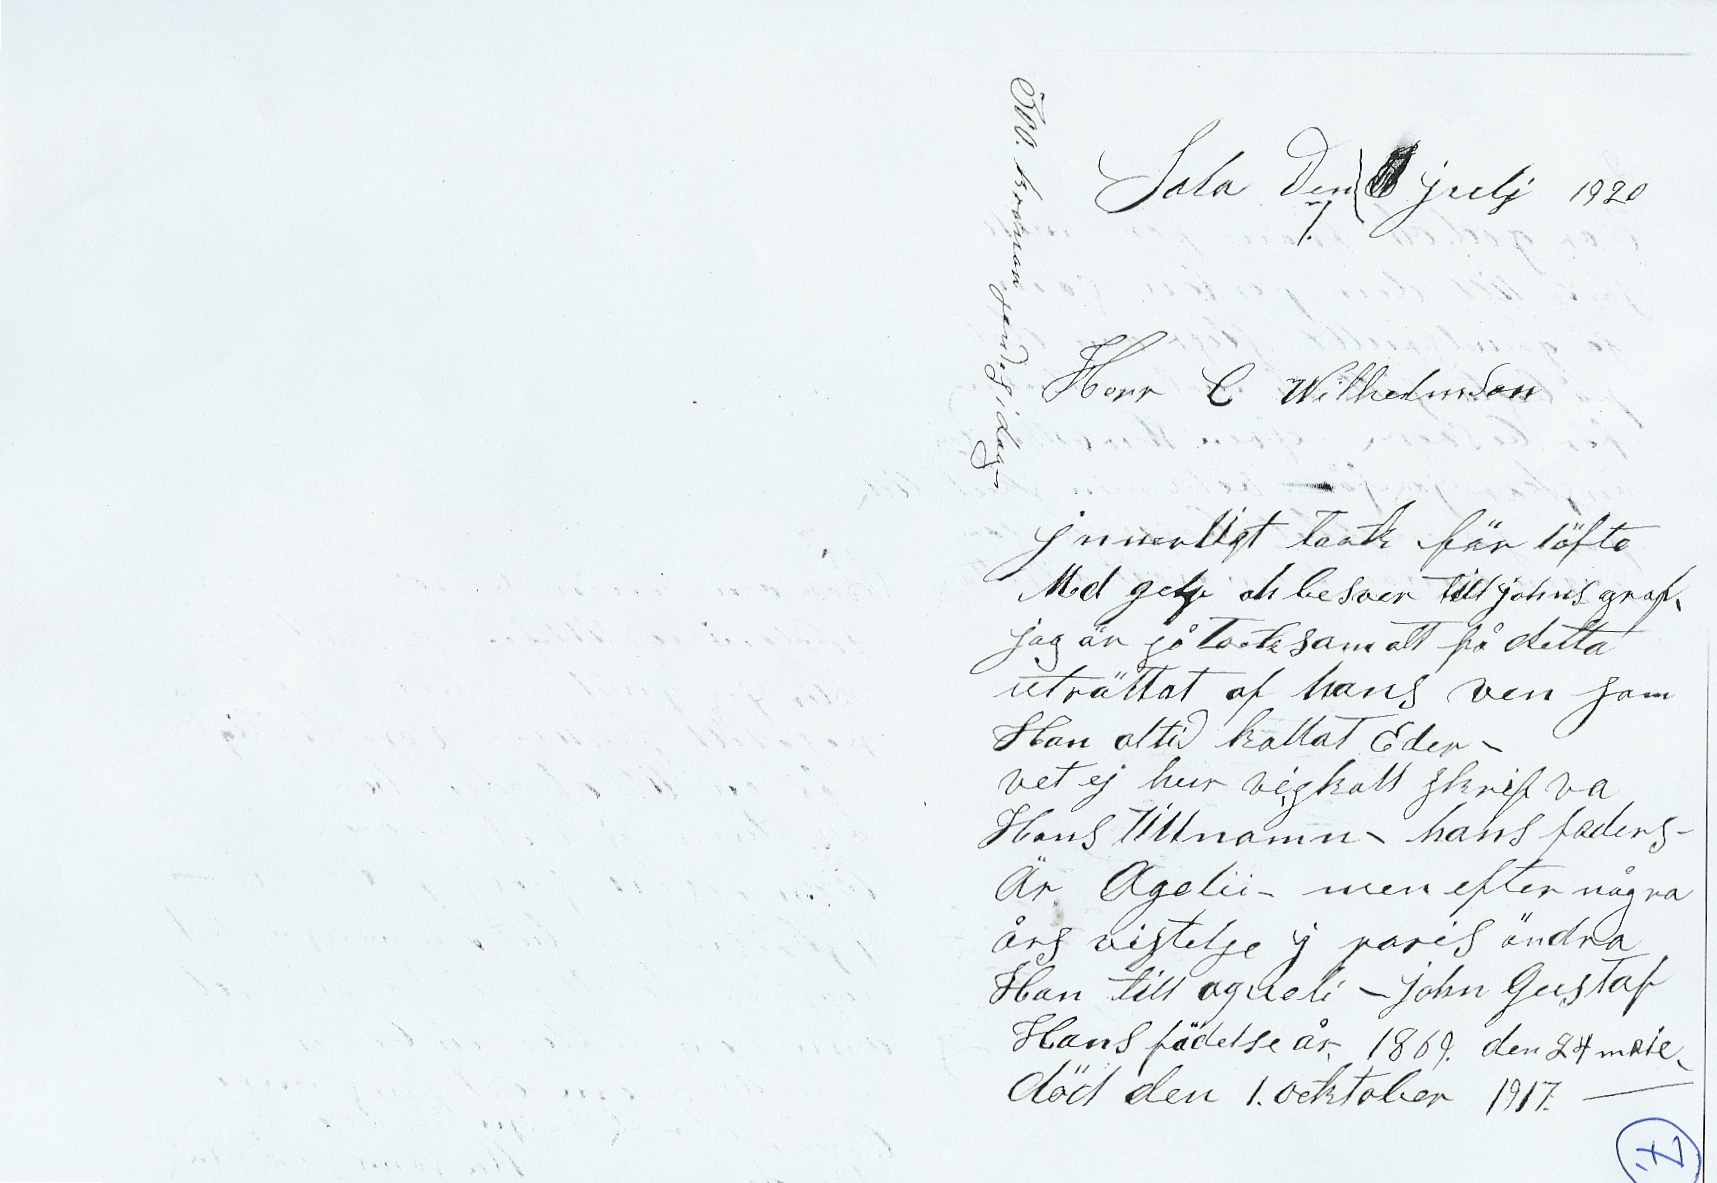 Sala Den 7 julij 1920
300. kronor sendes i dag
Herr C Wilhelmson
jnnerligt tack får löfte
Med gelp oh besver till johns graf.
jag är så tacksam att få detta
uträttat af hans ven som
Han altid kallat Eder –
vet ej hur vi skall skrifva
Hans tillnamn – hans faders –
Är Agelii – men efter några
års vistelse ij paris ändra
Han till agueli – john Gustaf
Hans födelse år. 1869. den 24 maie
död den 1. ocktober 1917. —